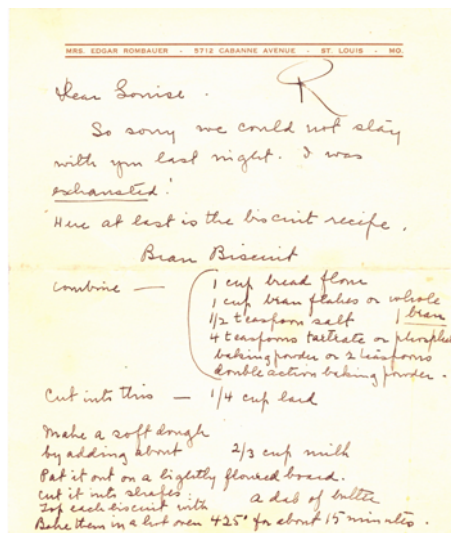 MRS. EDGAR ROMBAUER - 5712 CABANNE AVENUE - ST. LOUIS - MO.
R
Dear Louise.
So sorry we could not stay
with you last night. I was
exhausted!
Here at last is the biscuit recipe.
Bran Biscuit
combine — 1 cup bread flour
1 cup bran flakes or whole bran
1/2 teaspoon salt
4 teaspoons tartrate or phosphate
baking powder or 2 teaspoons
double action baking powder.
Cut into this — 1/4 cup lard
Make a soft dough
by adding about 2/3 cup milk
Pat it out on a lightly floured board.
Cut it into shapes.
Top each biscuit with a dab of butter
Bake them in a hot oven 425° for about 15 minutes.